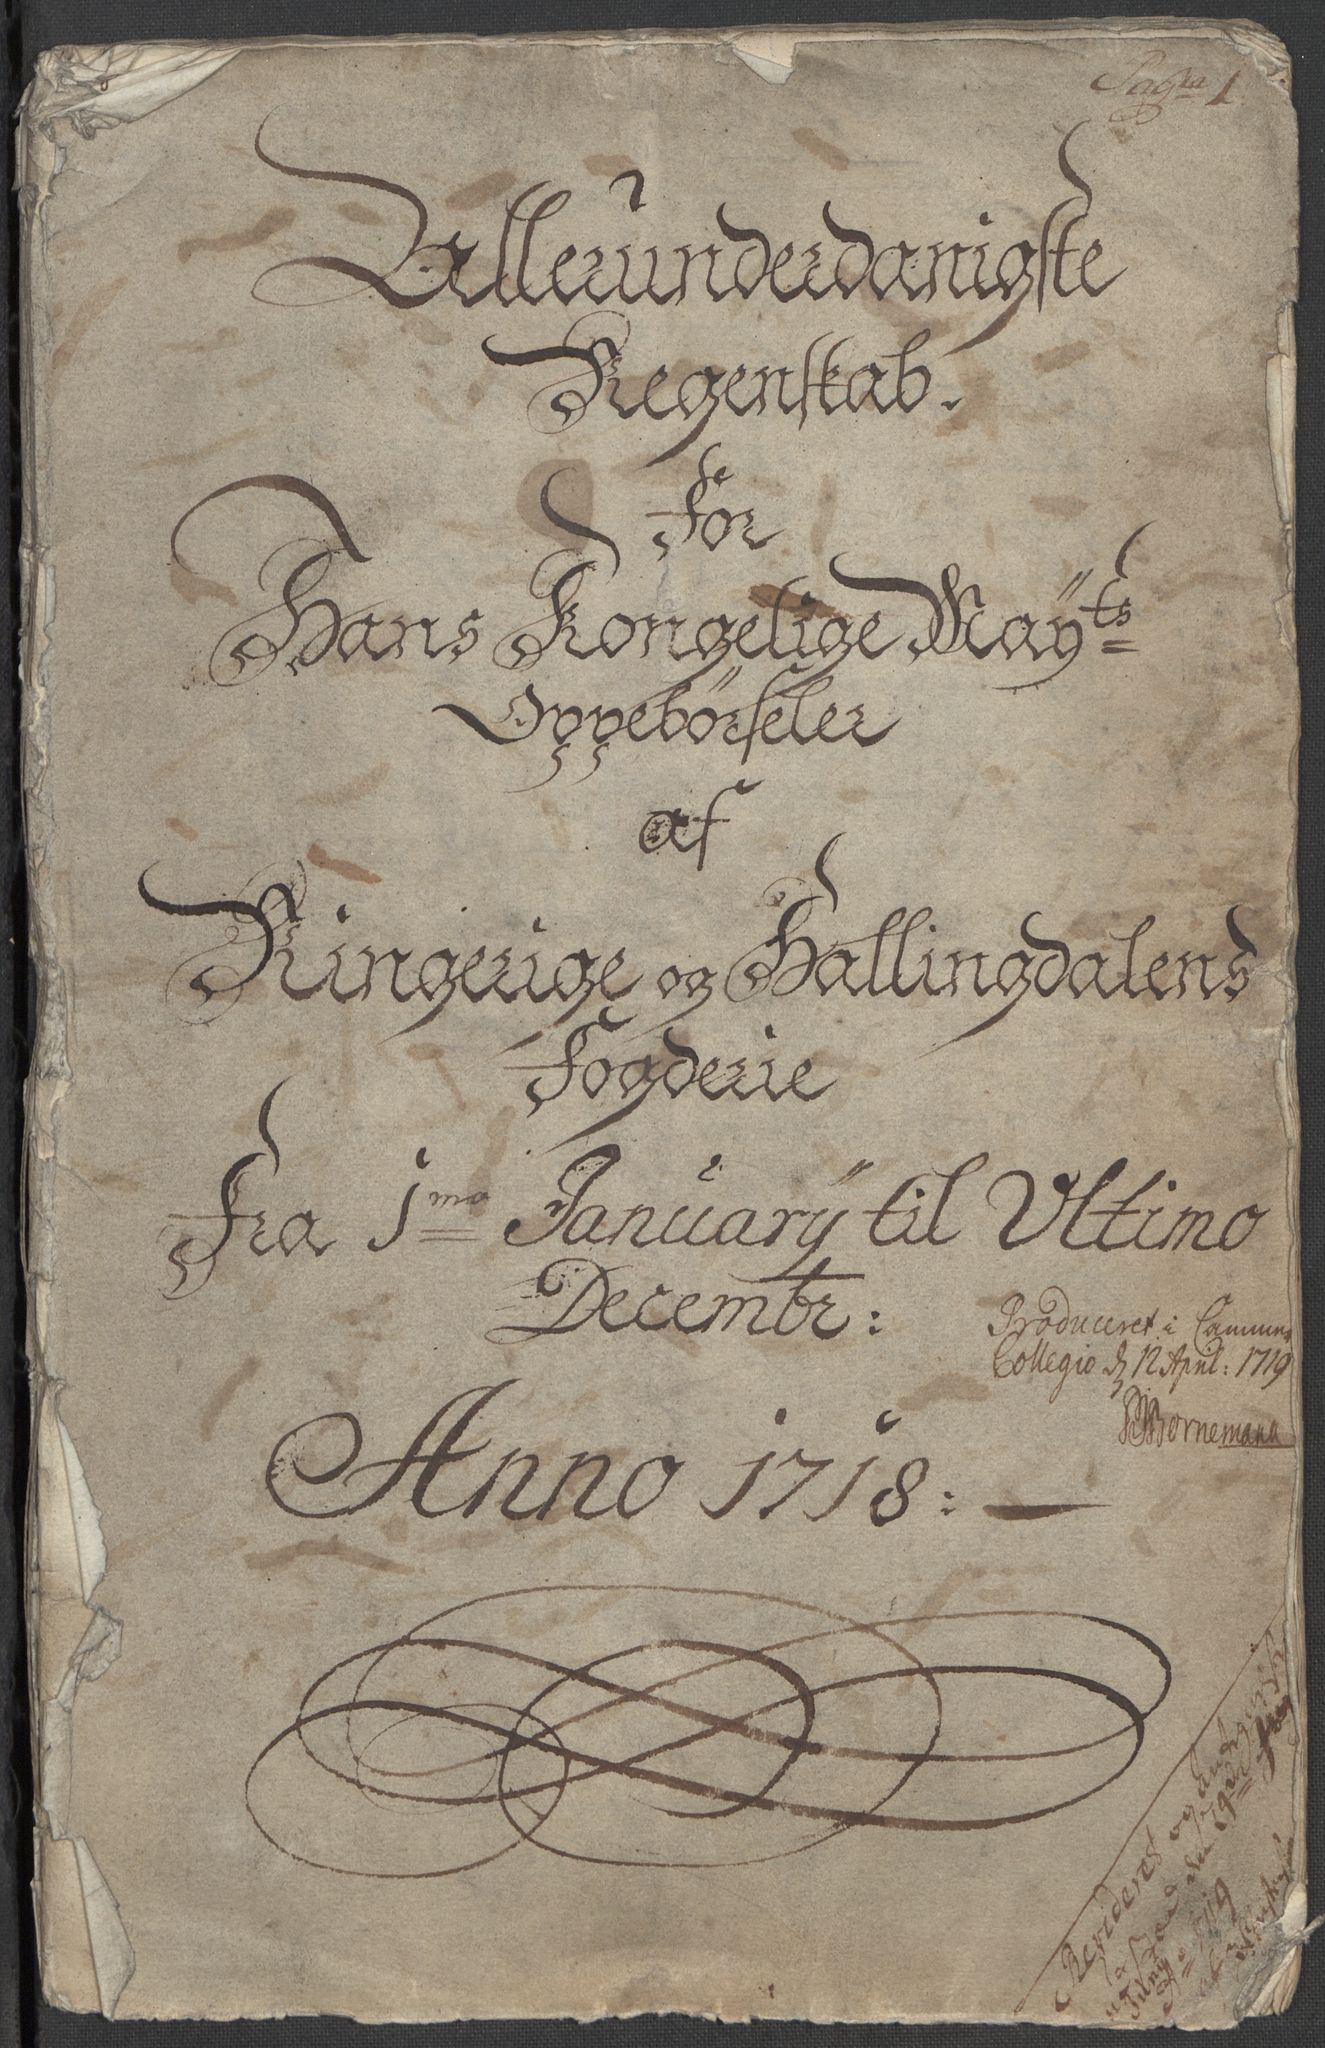 Pagna 1
Allerunderdanigste
Regenskab.
for
Hans Kongelige Mayts
Oppebörseler
af
Ringerige og Hallingdalens
Fogderie
Fra 1mo January til Ultimo
Decembr:
Producert i Cammer
Collegio d 12 April: 1719
Bornemann
Anno 1718:
Revideret og
den 19de
Juny
Ao 1719
af